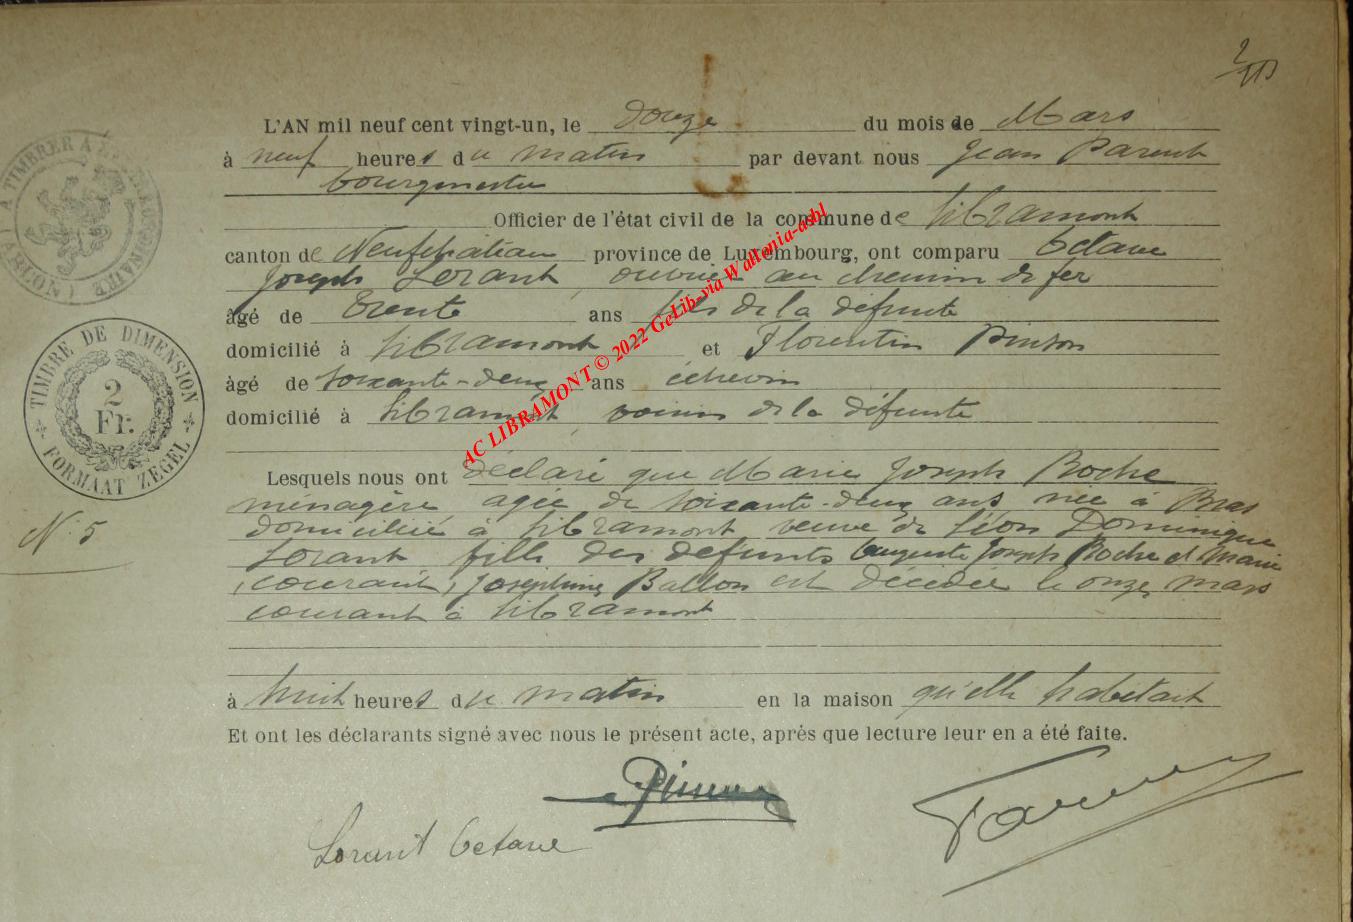 L'AN mil neuf cent vingt-un, le douze du mois de Mars
à neuf heures du matin par devant nous Jean Parent
bourgmestre
Officier de l'état civil de la commune de Libramont
canton de Neufchâteau province de Luxembourg, ont comparu Octave
Joseph Lorant, ouvrier au chemin de fer
âgé de trente ans fils de la défunte
domicilié à Libramont et Florentin Pinson
âgé de soixante-deux ans échevin
domicilié à Libramont, voisin de la défunte
Lesquels nous ont déclaré que Marie Joseph Roche
ménagère agée de soixante-deux ans née à Bras
domiciliée à Libramont veuve de Léon Dominique
Lorant fille des défunts Auguste Joseph Roche et Marie
(courant) Joséphine Ballon est décédée le onze mars
courant à Libramont
à huit heures du matin en la maison qu'elle habitait
Et ont les déclarants signé avec nous le présent acte, après que lecture leur en a été faite.
Lorant Octave
N° 5
TIMBRE DE DIMENSION
2
Fr.
FORMAAT ZEGEL
AC LIBRAMONT © 2022 GeLib-via Waltenia-asbl